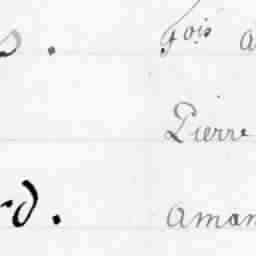 s. Fois a
Pierre
rd. aman